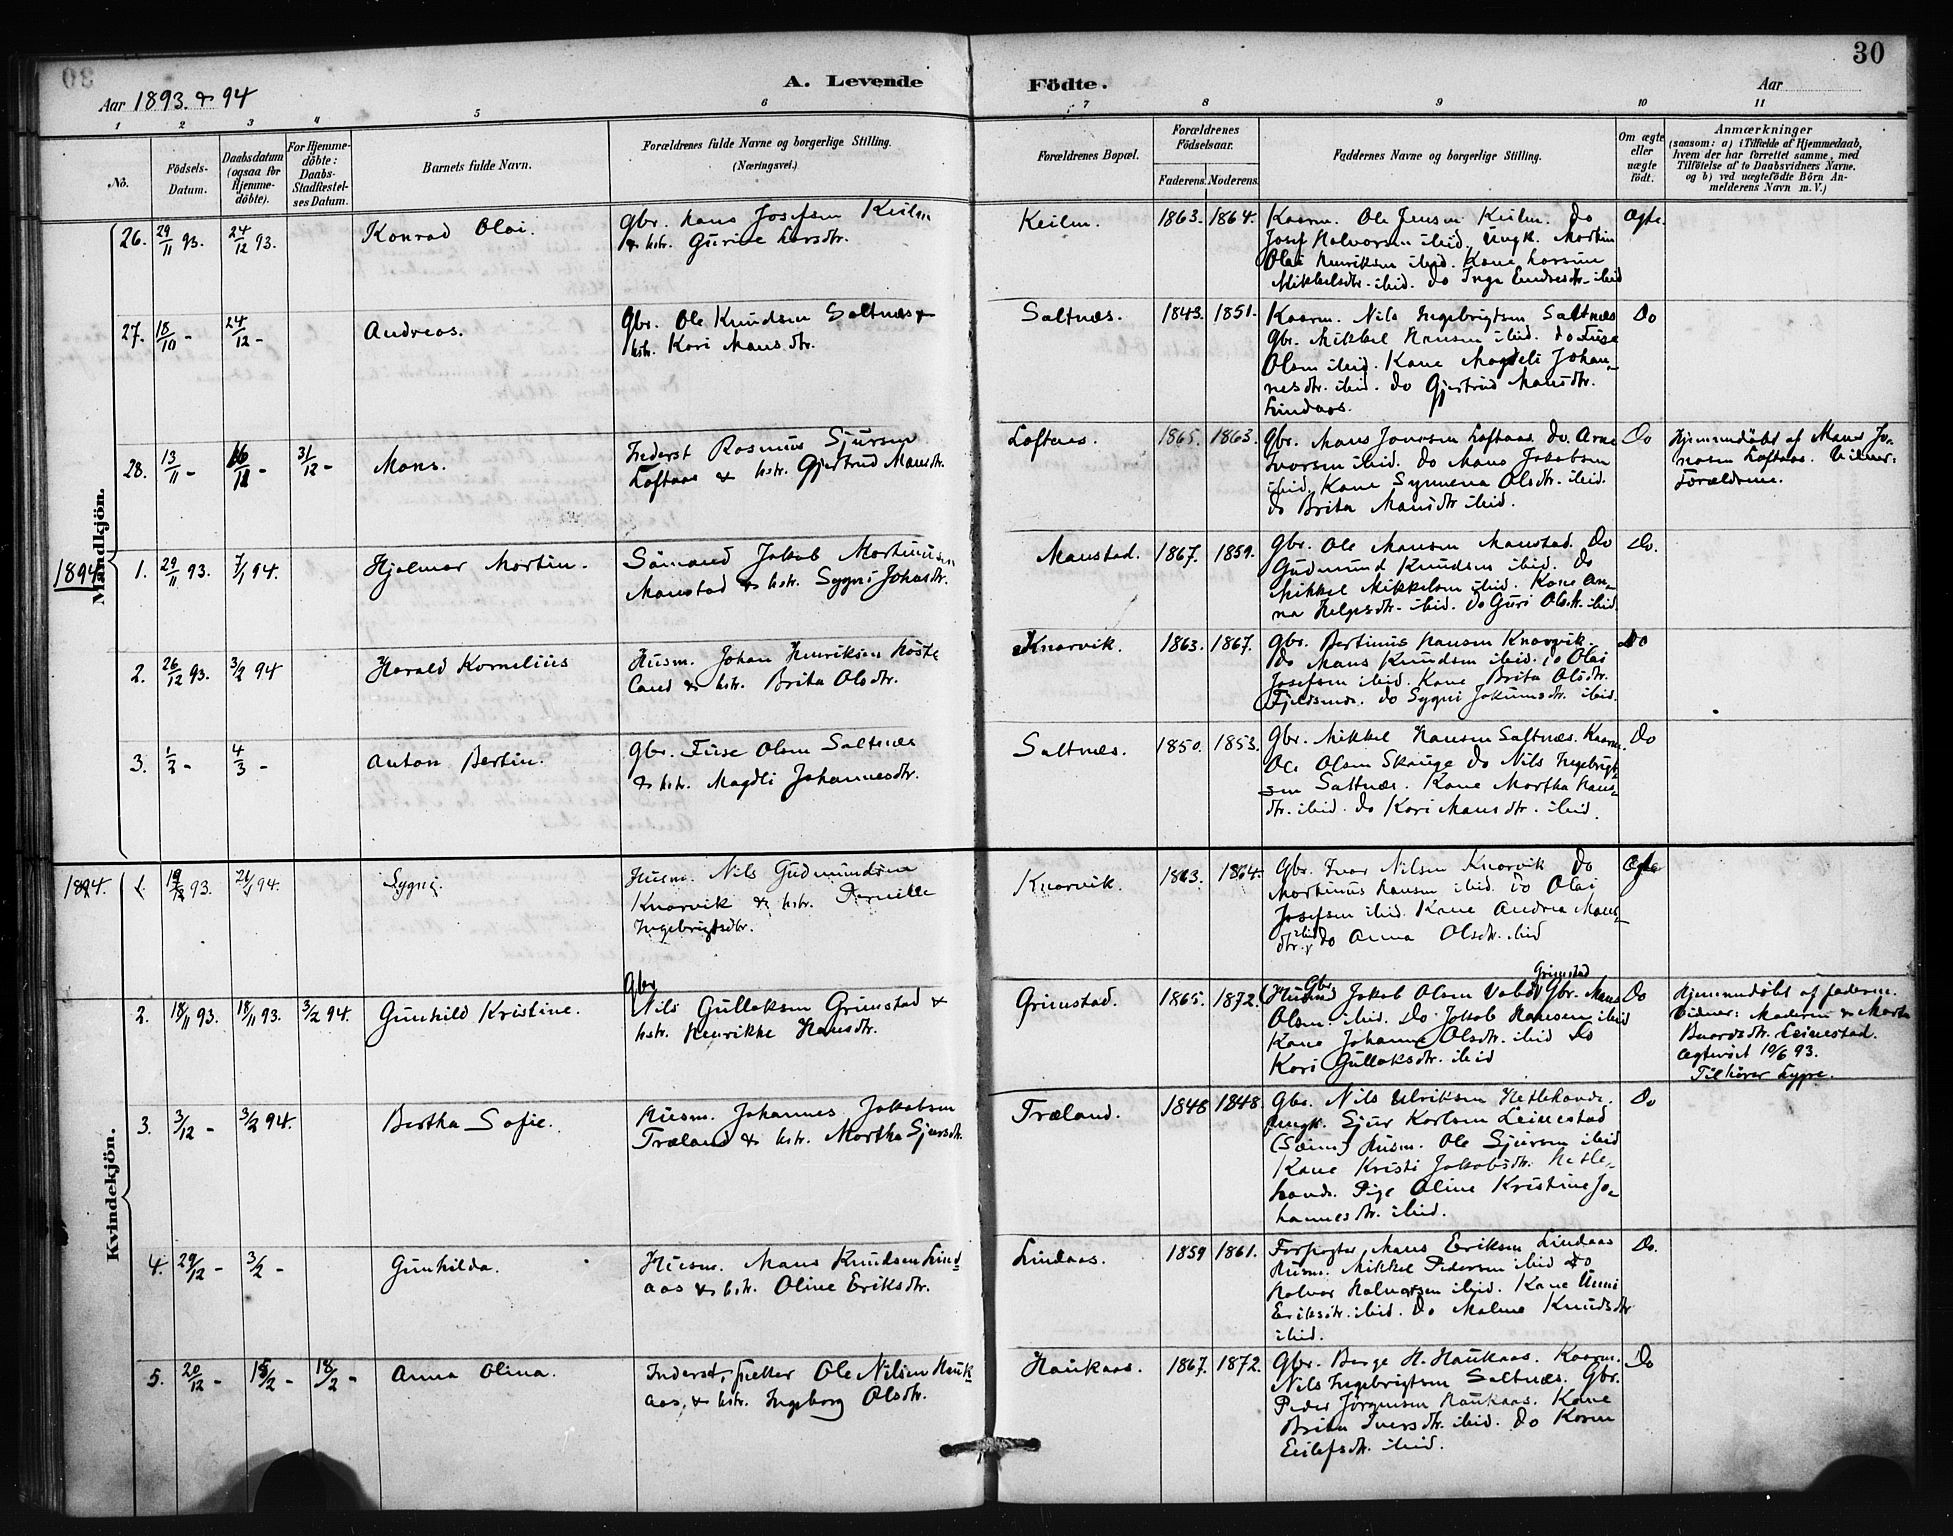 30
A. Levende Födte.
Aar 1893. & 94
Aar
1 2 3 4 5 6 7 8 9 10 11
No.
Födsels-Datum.
Daabsdatum (ogsaa for Hjemmedöbte).
For Hjemmedöbte: Daabs-Stadfestelses Datum.
Barnets fulde Navn.
Forældrenes fulde Navne og borgerlige Stilling. (Næringsvei.)
Forældrenes Bopæl.
Forældrenes Födselsaar.
Faderens. Moderens.
Faddernes Navne og borgerlige Stilling.
Om ægte eller uægte födt.
Anmærkninger
(saasom: a) i Tilfælde af Hjemmedaab, hvem der har forrettet samme, med Tilföielse af to Daabsvidners Navne. og b) ved uægtefödte Börn Anmelderens Navn m. V.)
Mandkjön.
26. 29/11 93. 24/12 93. Konrad Olai.
Gbr. Hans Josefsen Keilen
& hstr. Gurine Larsdtr.
Keilen. 1863. 1864.
Kaarm. Ole Jensen Keilen. Do
Josef Halvorsen ibid. Ungk. Martin
Olai Henriksen ibid. Kone Larsine
Mikkelsdtr. ibid. Do Inga Endresdtr. ibid
Ægte.
27. 18/10 - 24/12 - Andreas.
Gbr. Ole Knudsen Saltnæs &
hstr. Kari Mansdtr.
Saltnæs. 1843. 1851.
Kaarm. Nils Ingebrigtsen Saltnæs
Gbr. Mikkel Hansen ibid. Do Fuse
Olsen ibid. Kone Magdeli Johan-
nesdtr. ibid. Do Gjertrud Mansdtr.
Lindaas.
Do
28. 13/11 - 31/12 - Mons.
Inderst Rasmus Sjursen
Loftaas & hstr. Gjertrud Mansdtr.
Loftaas. 1865. 1863.
Gbr. Mans Jonassen Loftaas. Do Arne
Ivarsen ibid. Do Mans Jakobsen
ibid. Kone Synneva Olsdtr. ibid.
Do Brita Mansdtr ibid.
Do
Hjemmedöbt af Mans Jo-
nasen Loftaas. Vidner:
Forældrene.
1894
1. 29/11 93. 7/1 94. Hjalmar Martin.
Sömand Jakob Martinusen
Manstad & hstr. Sygni Johansdtr.
Manstad. 1867. 1859.
Gbr. Ole Mansen Manstad. Do
Gudmund Knudsen ibid. Do
Mikkel Mikkelsen ibid. Kone An-
na Helgesdtr. ibid. Do Guri Olsdtr. ibid.
Do.
2. 26/12 93. 3/2 94 Harald Kornelius
Husm. Johan Henriksen Röste
land & hstr. Brita Olsdtr.
Knarvik. 1863. 1867.
Gbr. Bertinus Hansen Knarvik.
Do Mans Knudsen ibid. Do Olai
Josefsen ibid. Kone Brita Olsdtr.
Fjeldsende. Do Sygni Jokumsdtr. ibid.
Do
3. 1/2 - 4/3 - Anton Bertin.
Gbr. Fuse Olsen Saltnæs
& hstr. Magdli Johannesdtr.
Saltnæs. 1850. 1853.
Gbr. Mikkel Hansen Saltnæs. Kaarm.
Ole Olsen Skauge Do Nils Ingebrigt-
sen Saltnæs. Kone Martha Hans-
dtr. ibid. Do Kari Mansdtr. ibid.
Do
Kvindekjön.
1894. 1. Sygni.
Husm. Nils Gudmundsen
Knarvik & hstr. Pernille
Ingebrigtsdtr.
Knarvik. 1863. 1864.
Gbr. Ivar Nilsen Knarvik Do
Martinus Hansen ibid. Do Olai
Josefsen ibid. Kone Andrea Mans-
dtr. ibid Do Anna Olsdtr. ibid
Ægte
2. 18/11 93. 18/11 93. 3/2 94. Gunhild Kristine.
Gbr.
Nils Gullaksen Grimstad &
hstr. Henrikke Hansdtr.
Grimstad. 1865. 1872.
Gbr. Jakob Olsen Grimstad Gbr. Mans
Olsen ibid. Do Jakob Hansen ibid
Kone Johanne Olsdtr. ibid Do
Kari Gullaksdtr. ibid
Do
Hjemmedöbt af faderen.
Vidner: Moderen & Marta
Baardsdtr. Leinestad.
Ægteviet 10/6 93.
Tilhører Lygre.
3. 3/12 - 3/2 94. Bertha Sofie.
Husm. Johannes Jakobsen
Træland & hstr. Martha Sjursdtr.
Træland. 1848 1848.
Gbr. Nils Ulriksen Hetlehands.
Ungk. Sjur Karlsen Leinestad
(Seim) Husm. Ole Sjursen ibid
Kone Kristi Jakobsdtr. Hetle-
hands. Pige Oline Kristine Jo-
hannesdtr. ibid.
Do
4. 29/12 - 3/2 - Gunhilda.
Husm. Mans Knudsen Lind-
aas & hstr. Oline Eriksdtr.
Lindaas. 1859 1861.
Forpagter Mans Eriksen Lindaas
Husm. Mikkel Pedersen ibid Do
Halvor Halvorsen ibid. Kone Anni
Eriksdtr. ibid. Do Malene Knudsdtr
ibid.
Do.
5. 20/12 - 18/2 - Anna Olina.
Inderst, Ole Nilsen Hauk-
aas, & hstr. Ingeborg Olsdtr.
Haukaas. 1867. 1872.
Gbr. Berge H. Haukaas. Kaarm.
Nils Ingebrigtsen Saltnæs. Gbr.
Peder Jörgensen Haukaas. Kone
Brita Iversdtr. ibid. Do Karen
Eilefsdtr. ibid.
Do